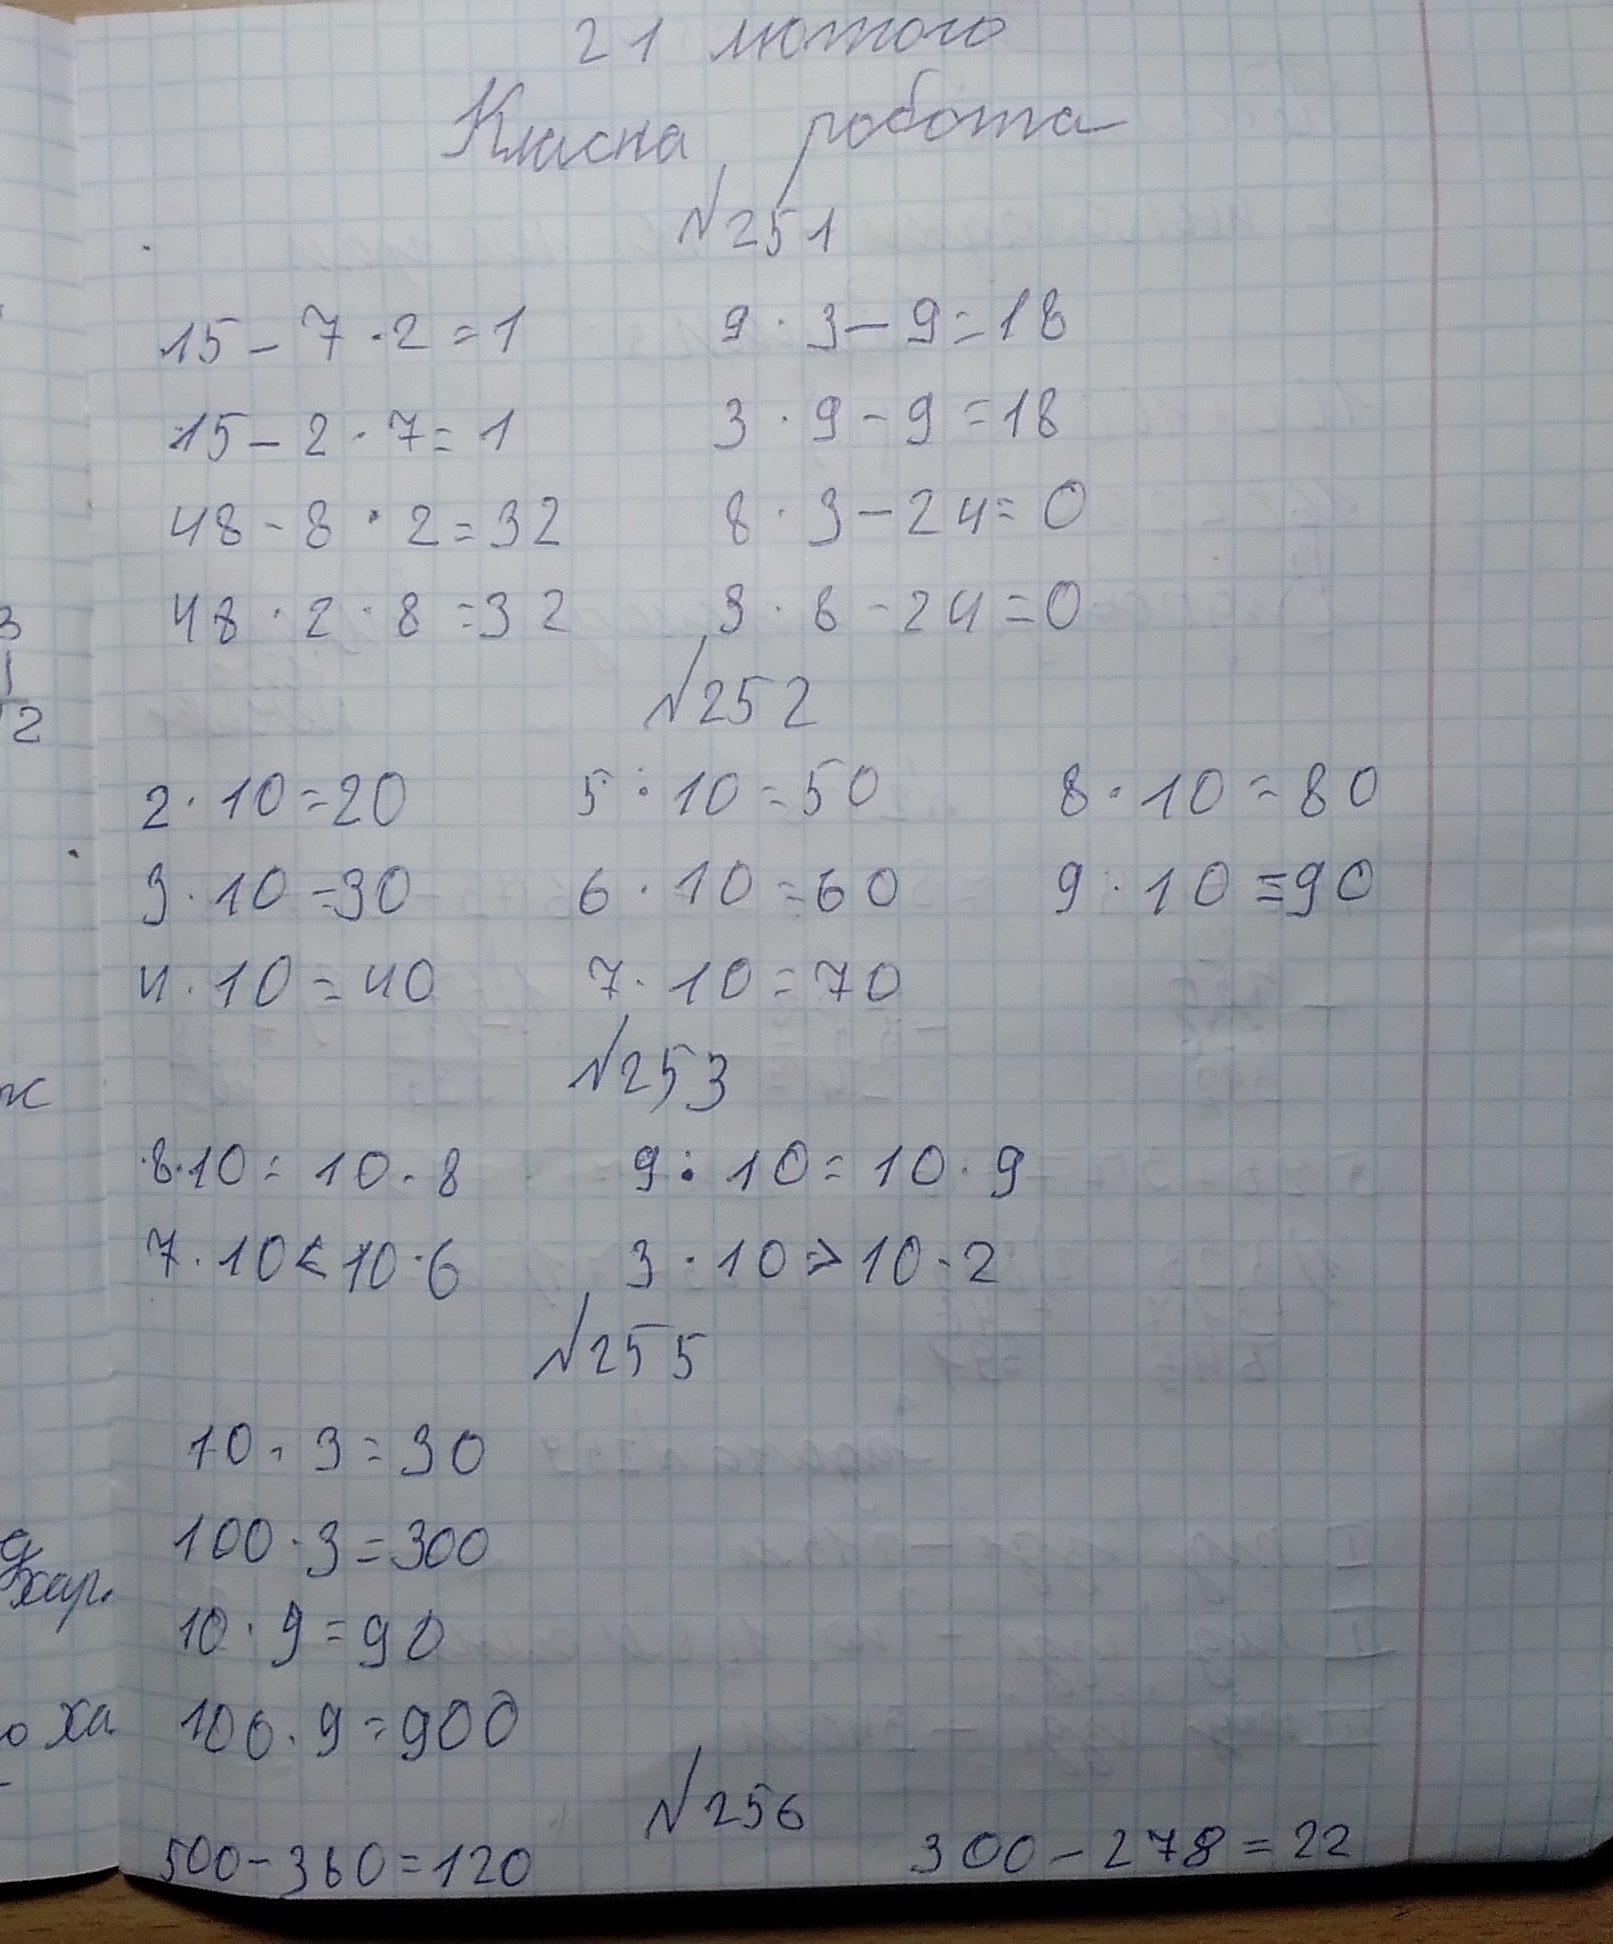 21 лютого
Класна робота
№251
15 - 7 · 2 = 1 9 · 3 - 9 = 18
15 - 2 · 7 = 1 3 · 9 - 9 = 18
48 - 8 · 2 = 32 8 · 3 - 24 = 0
48 · 2 · 8 = 32 3 · 8 - 24 = 0
№252
2 · 10 = 20 5 · 10 = 50 8 · 10 = 80
3 · 10 = 30 6 · 10 = 60 9 · 10 = 90
4 · 10 = 40 7 · 10 = 70
№253
8 · 10 = 10 · 8 9 : 10 = 10 · 9
7 · 10 < 10 · 6 3 · 10 > 10 · 2
№255
10 · 3 = 30
100 · 3 = 300
10 · 9 = 90
100 · 9 = 900
№256
500 - 380 = 120 300 - 278 = 22